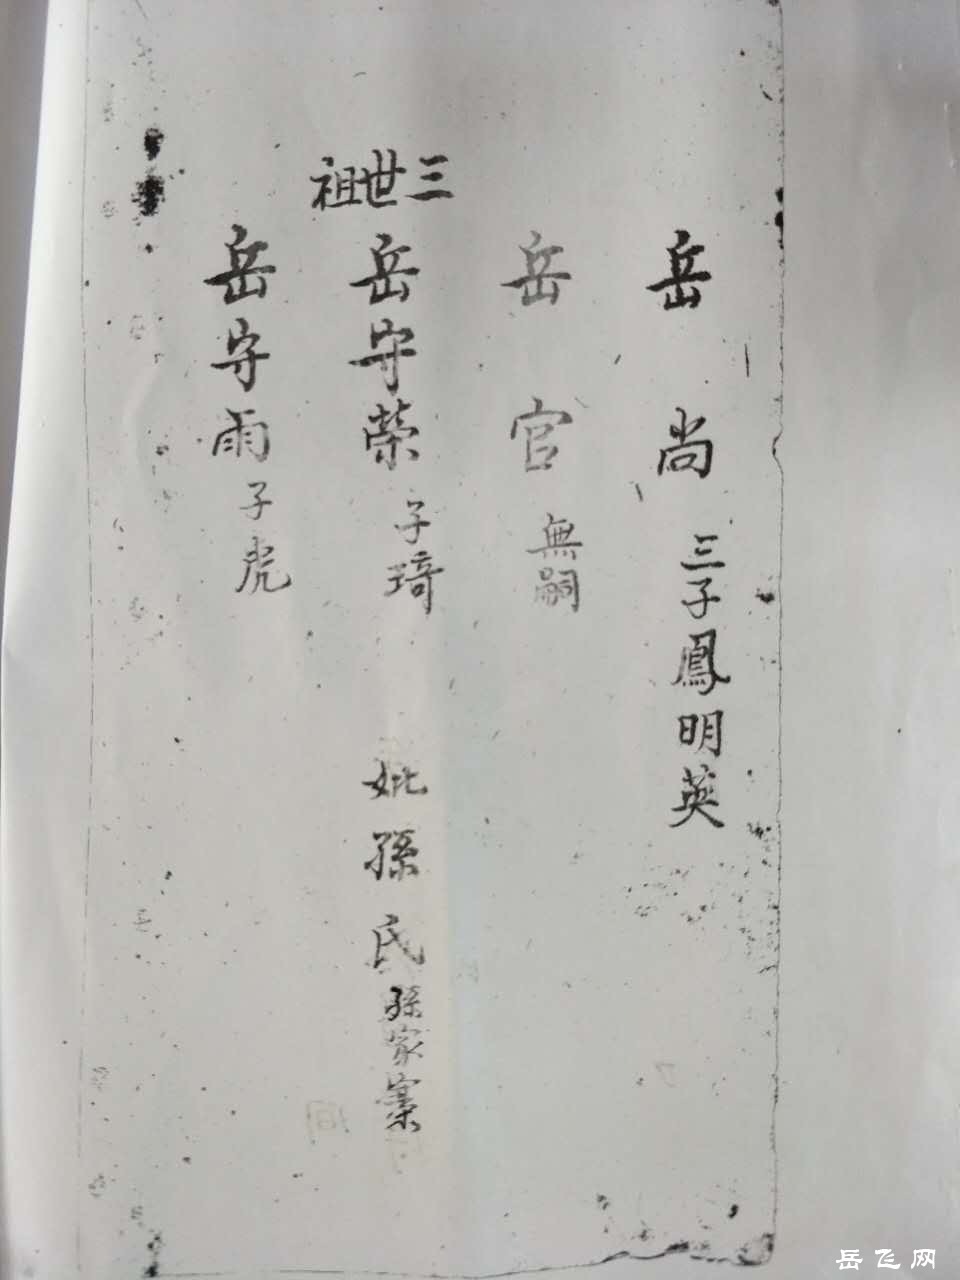 岳尚 三子鳳明英
岳官 無嗣
三世祖
岳守榮 子琦 妣孫氏 孫家寨
岳守雨 子虎
岳飞网